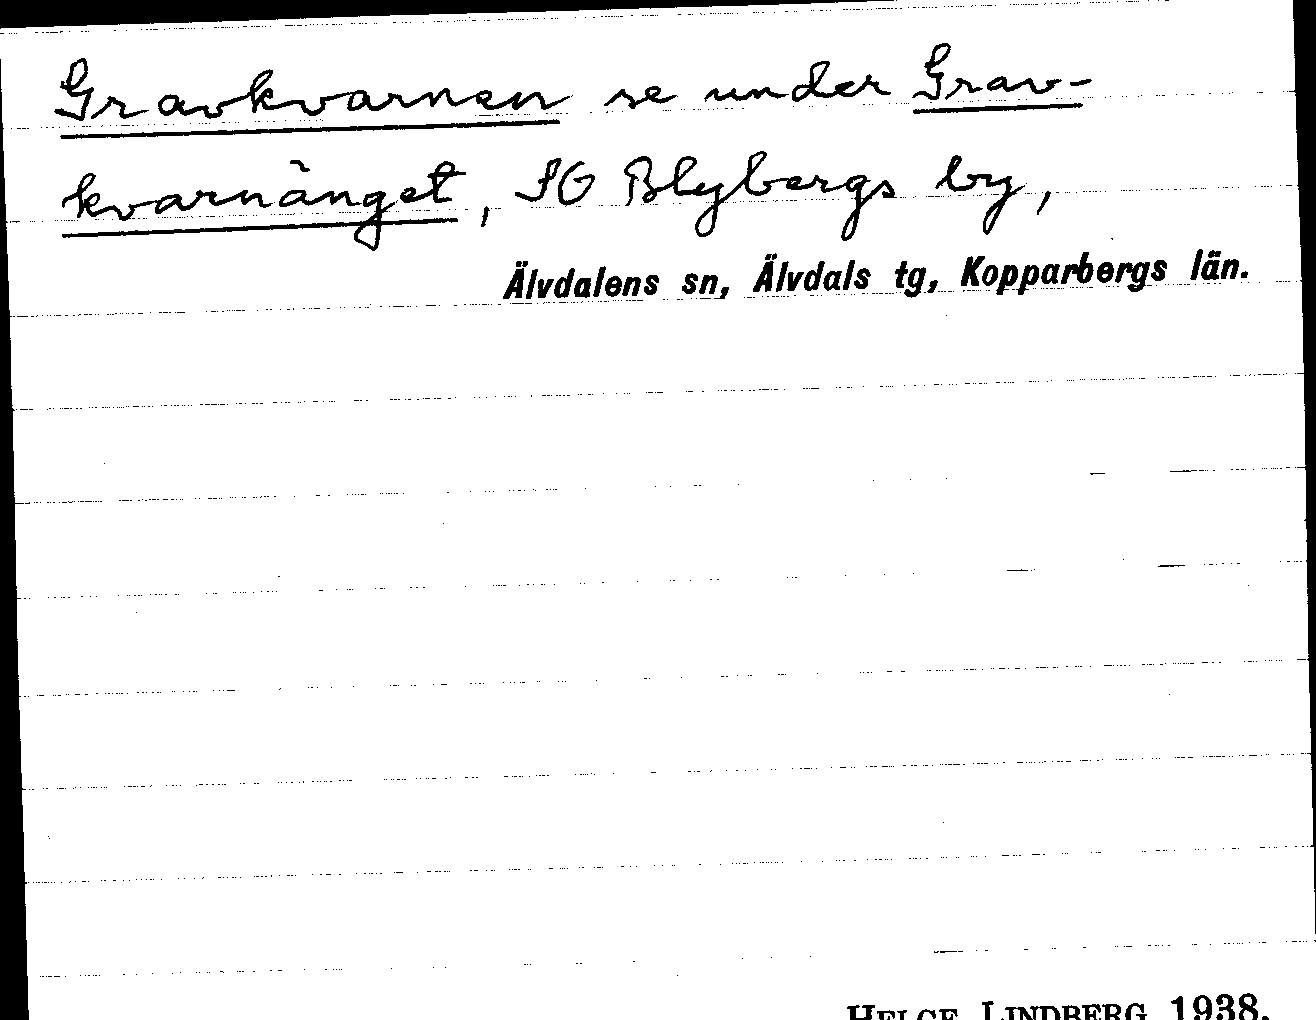 Gravkvarnen se under Grav-
kvarnänget, SO Blybergs by,
Älvdalens sn, Älvdals tg, Kopparbergs län.
HELGE LINDBERG 1938.